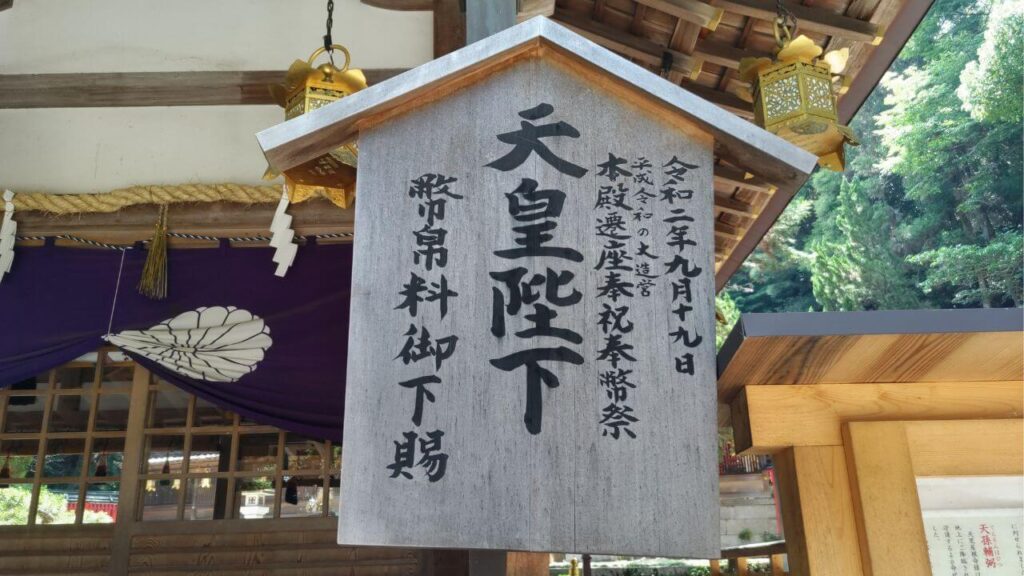 令和二年九月十九日
平成令和の大造営
本殿遷座奉祝奉幣祭
天皇陛下
幣帛料御下賜
天孫輔弼